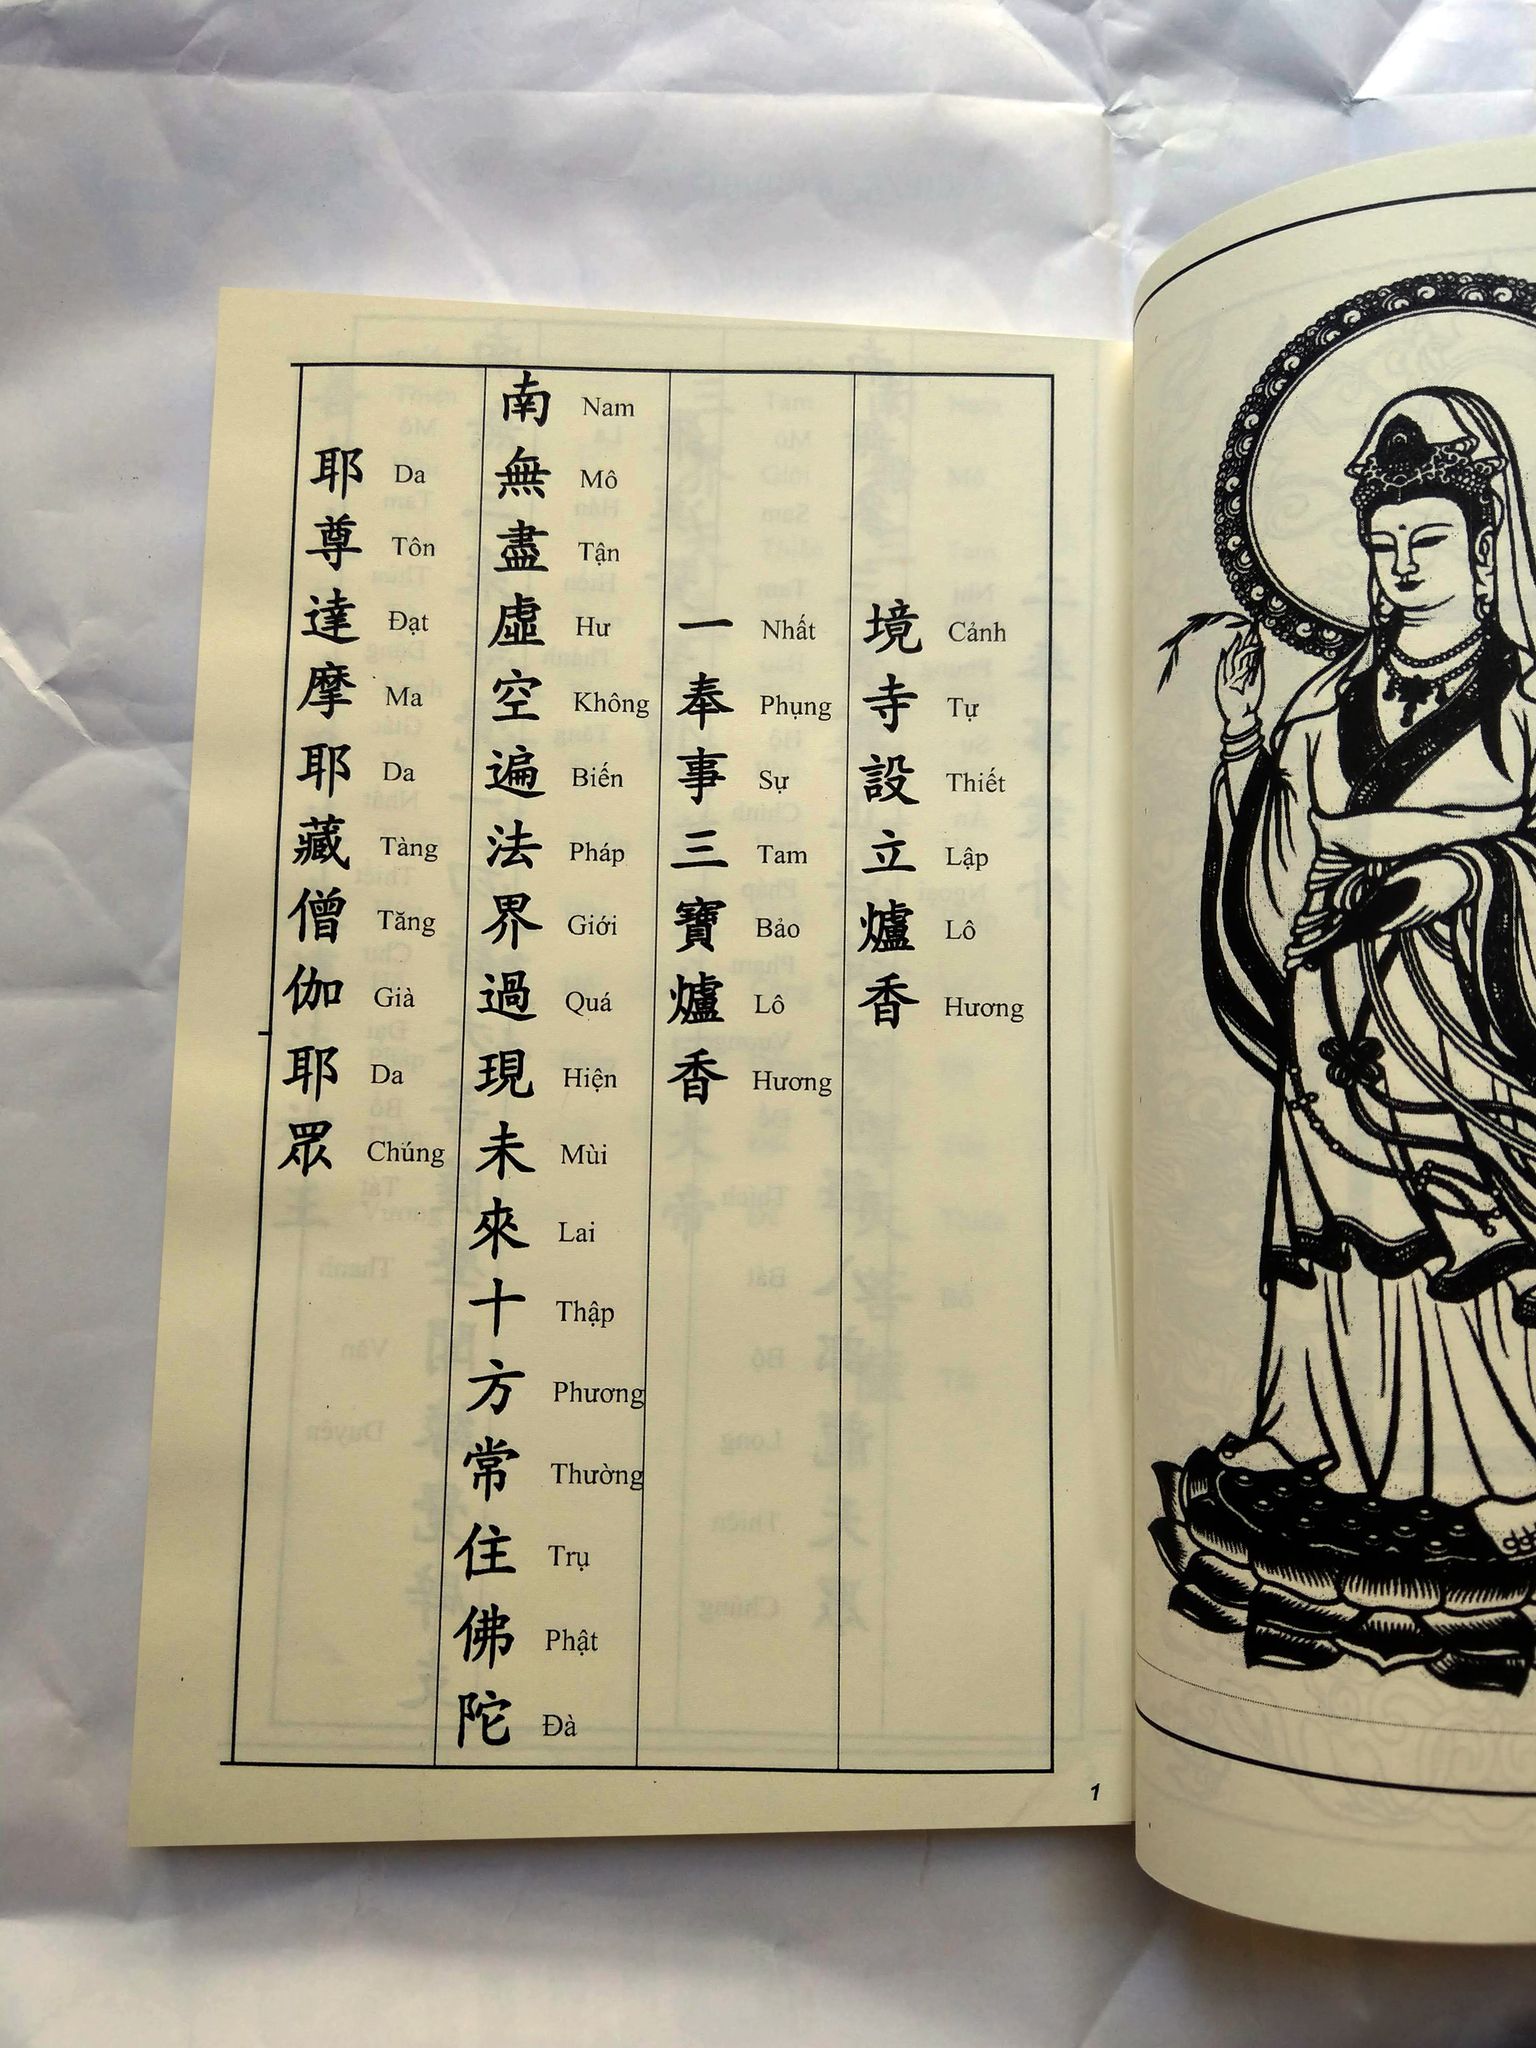 境 Cảnh
寺 Tự
設 Thiết
立 Lập
爐 Lô
香 Hương
一 Nhất
奉 Phụng
事 Sự
三 Tam
寶 Bảo
爐 Lô
香 Hương
南 Nam
無 Mô
盡 Tận
虛 Hư
空 Không
遍 Biến
法 Pháp
界 Giới
過 Quá
現 Hiện
未 Mùi
來 Lai
十 Thập
方 Phương
常 Thường
住 Trụ
佛 Phật
陀 Đà
耶 Da
尊 Tôn
達 Đạt
摩 Ma
耶 Da
藏 Tàng
僧 Tăng
伽 Già
耶 Da
眾 Chúng
1